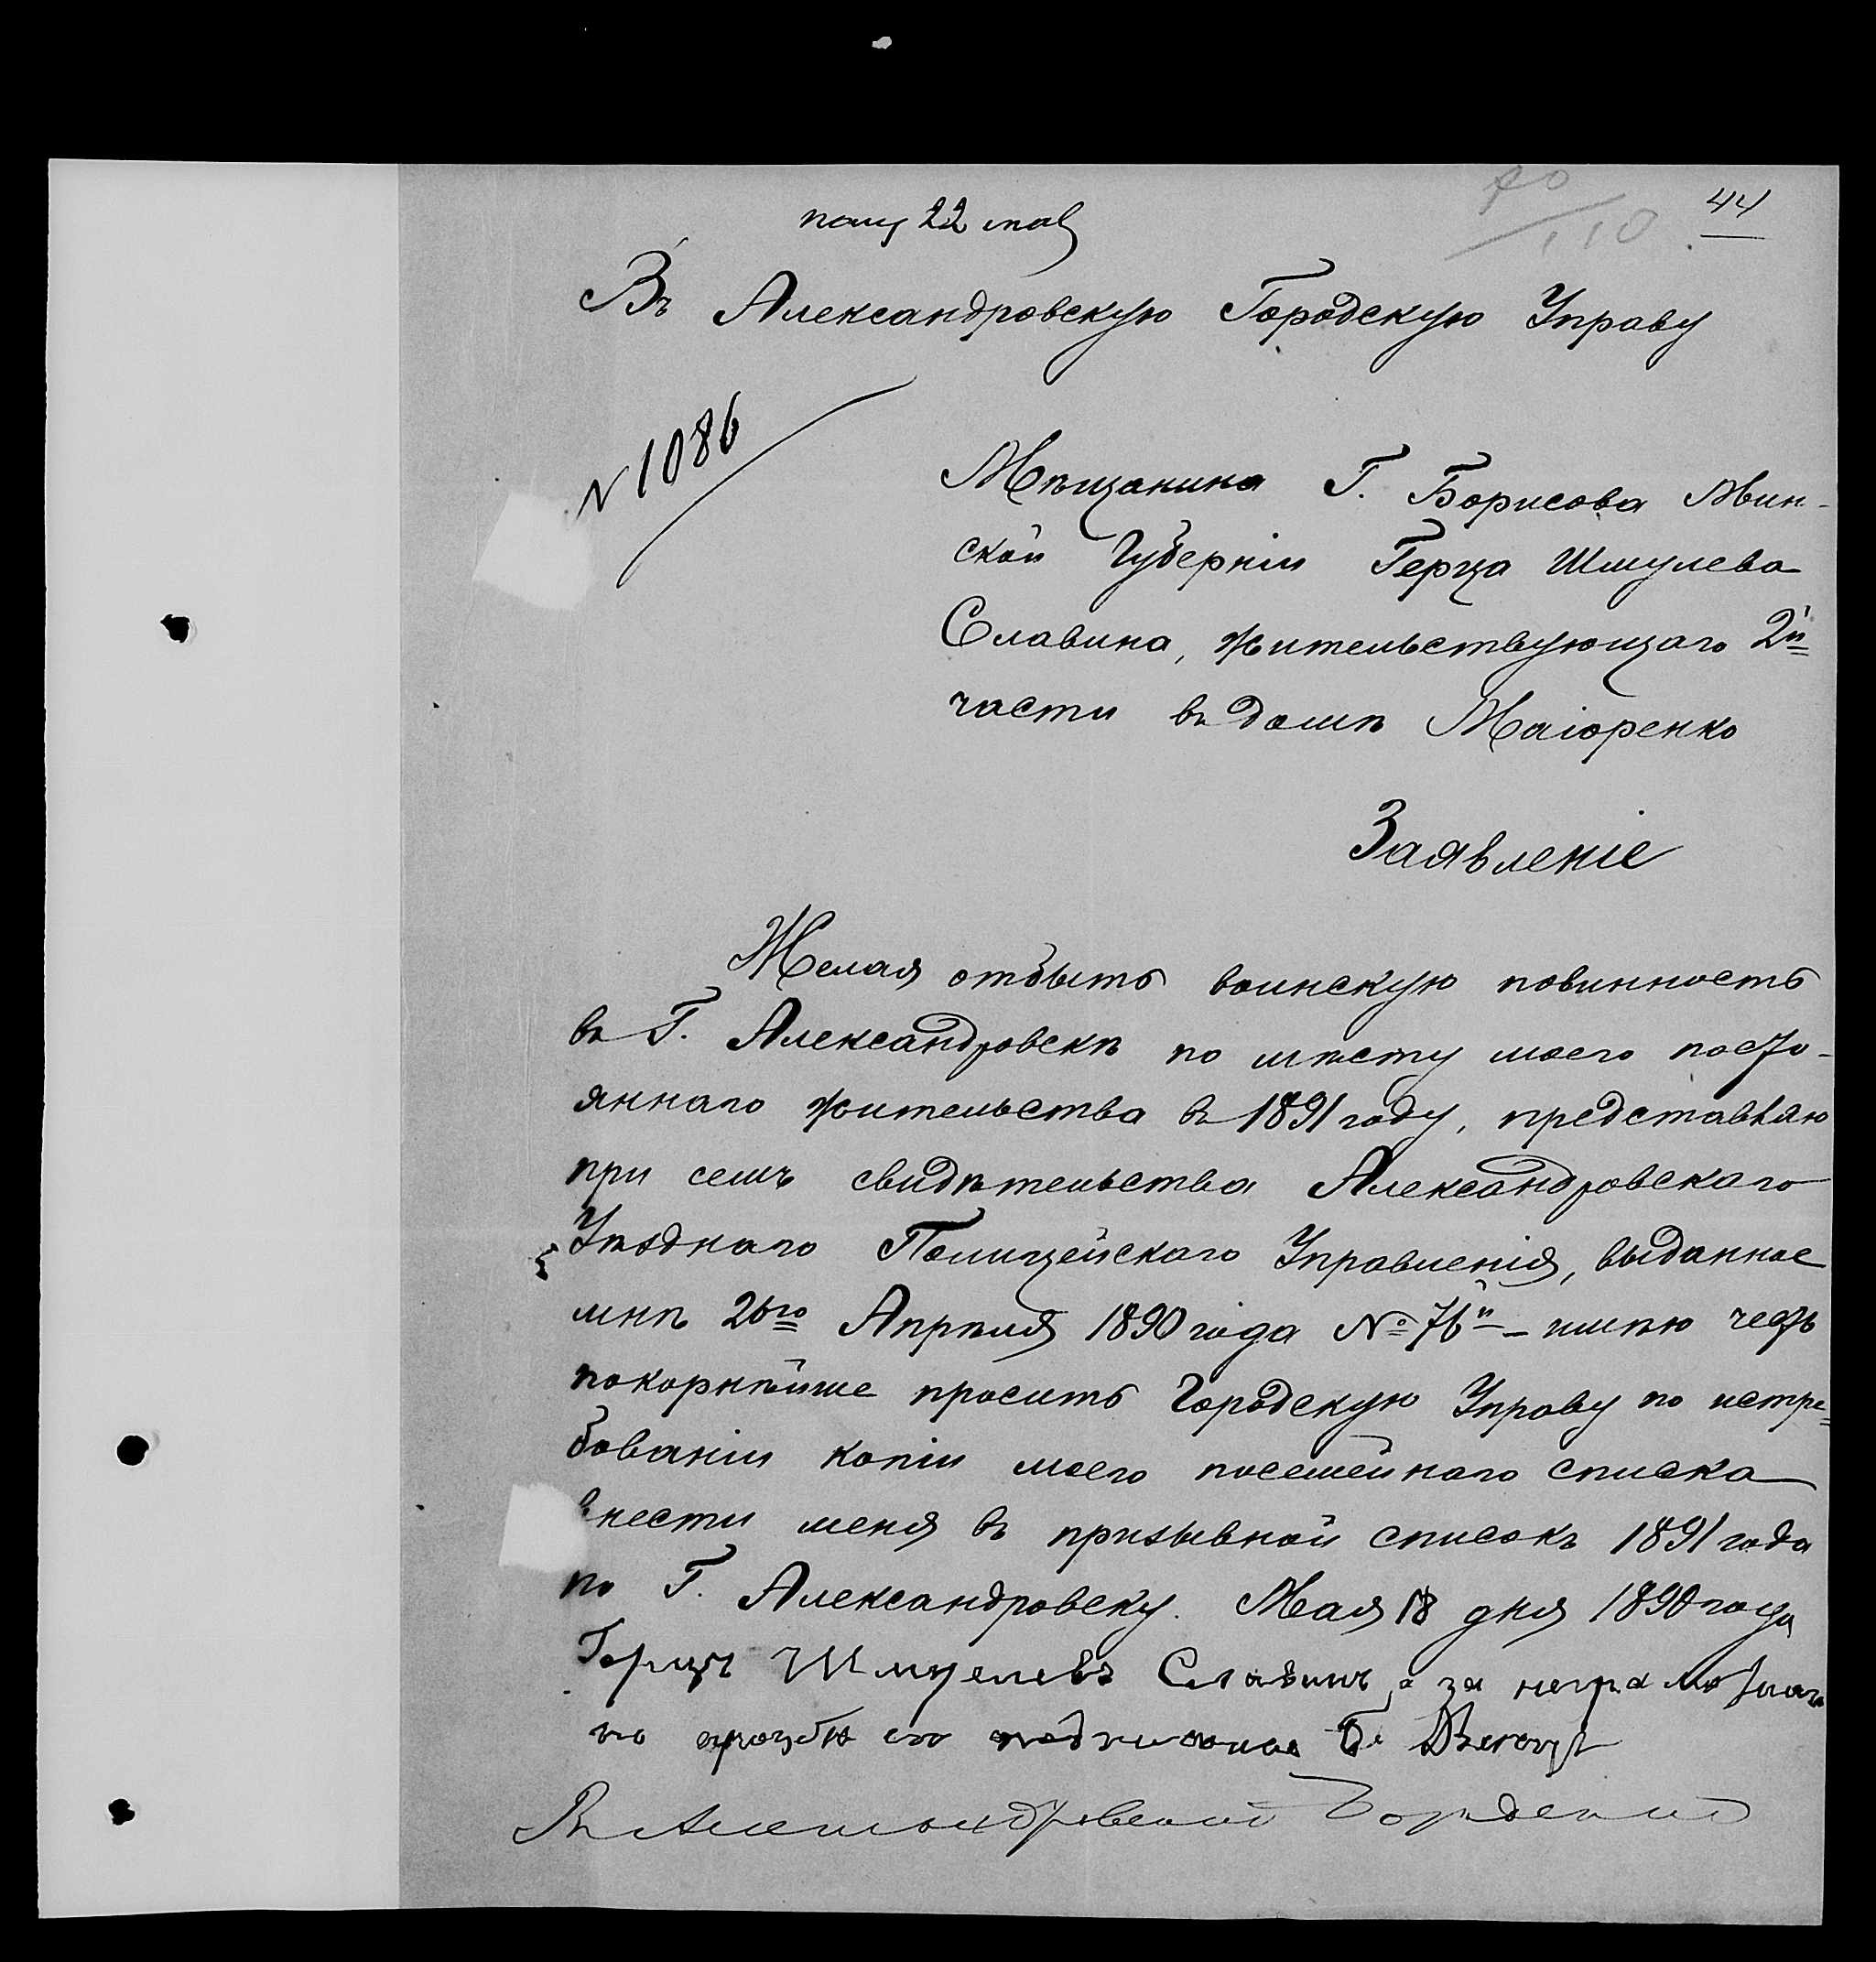 44
110
пол 22 мая
Въ Александровскую Городскую Управу
N 1086
Мѣщанина Г. Борисова Мин-
ской Губерніи Герца Шмулева
Славина, жительствующаго 2й
части въ домѣ Маіоренко
Заявленіе
Желая отбыть воинскую повинность
въ Г. Александровскѣ по мѣсту моего посто-
яннаго жительства въ 1891 году, представляю
при семъ свидѣтельства Александровскаго
Уѣзднаго Полицейскаго Управленія, выданное
мнѣ 26го Апрѣля 1890 года № 76й – имѣю честь
покорнѣйше просить Городскую Управу по истре-
бованіи копіи моего посемейнаго списка
внести меня въ призывной списокъ 1891 года
по Г. Александровску. Мая 18 дня 1890 года
Герцъ Шмуелевъ Славинъ, а за неграмотнаго
по прозбѣ его подписалъ Б.
Въ Александровской Городской